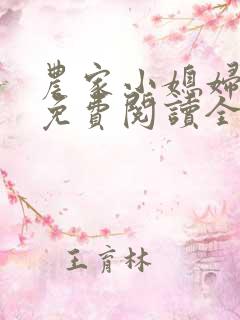 農家小媳婦
免費閱讀全
王育林